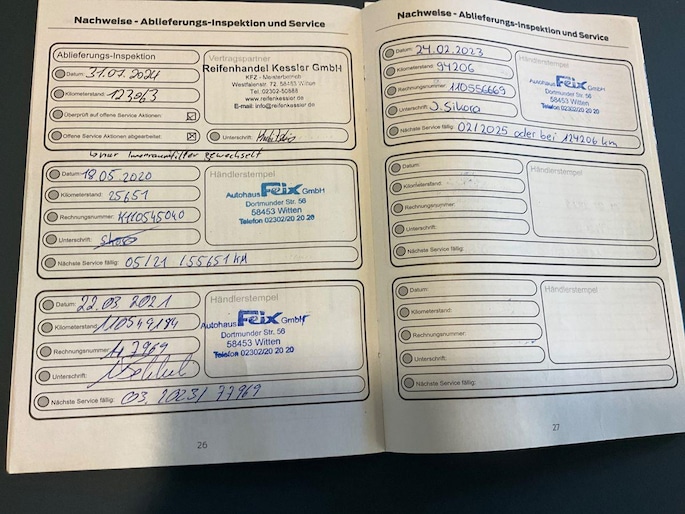 Nachweise - Ablieferungs-Inspektion und Service
Ablieferungs-Inspektion
Datum: 31.07.2024
Kilometerstand: 123963
Überprüft auf offene Service Aktionen
Offene Service Aktionen abgearbeitet
Vertragspartner
Reifenhandel Kessler GmbH
KFZ - Meisterbetrieb
Westfalenstr. 72, 58453 Witten
Tel. 02302-50888
www.reifenkessler.de
E-mail: info@reifenkessler.de
Unterschrift:
gewechselt
Datum: 18.05.2020
Kilometerstand: 25651
Rechnungsnummer: K110545040
Unterschrift:
Nächste Service fällig: 05/21 / 55651 KM
Händlerstempel
Autohaus Feix GmbH
Dortmunder Str. 56
58453 Witten
Telefon 02302/20 20 20
Datum: 22.03 2021
Kilometerstand: 110549184
Rechnungsnummer: 47969
Unterschrift:
Nächste Service fällig: 03. 2023/ 77969
Händlerstempel
Autohaus Feix GmbH
Dortmunder Str. 56
58453 Witten
Telefon 02302/20 20 20
26
Nachweise - Ablieferungs-Inspektion und Service
Datum: 24.02.2023
Kilometerstand: 94206
Rechnungsnummer: 110556669
Unterschrift: J. Sikora
Nächste Service fällig: 02/2025 oder bei 124206 km
Händlerstempel
Autohaus Feix GmbH
Dortmunder Str. 56
58453 Witten
Telefon 02302/20 20 20
Datum:
Kilometerstand:
Rechnungsnummer:
Unterschrift:
Nächste Service fällig:
Händlerstempel
Datum:
Kilometerstand:
Rechnungsnummer:
Unterschrift:
Nächste Service fällig:
Händlerstempel
27